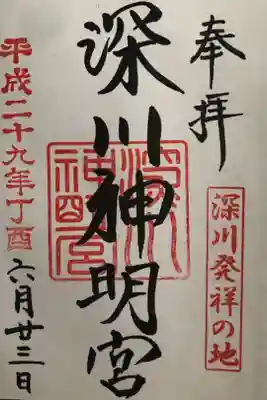 奉拝
深川発祥の地
深川神明宮
深川
神明宮
平成二十九年丁酉
六月廿三日